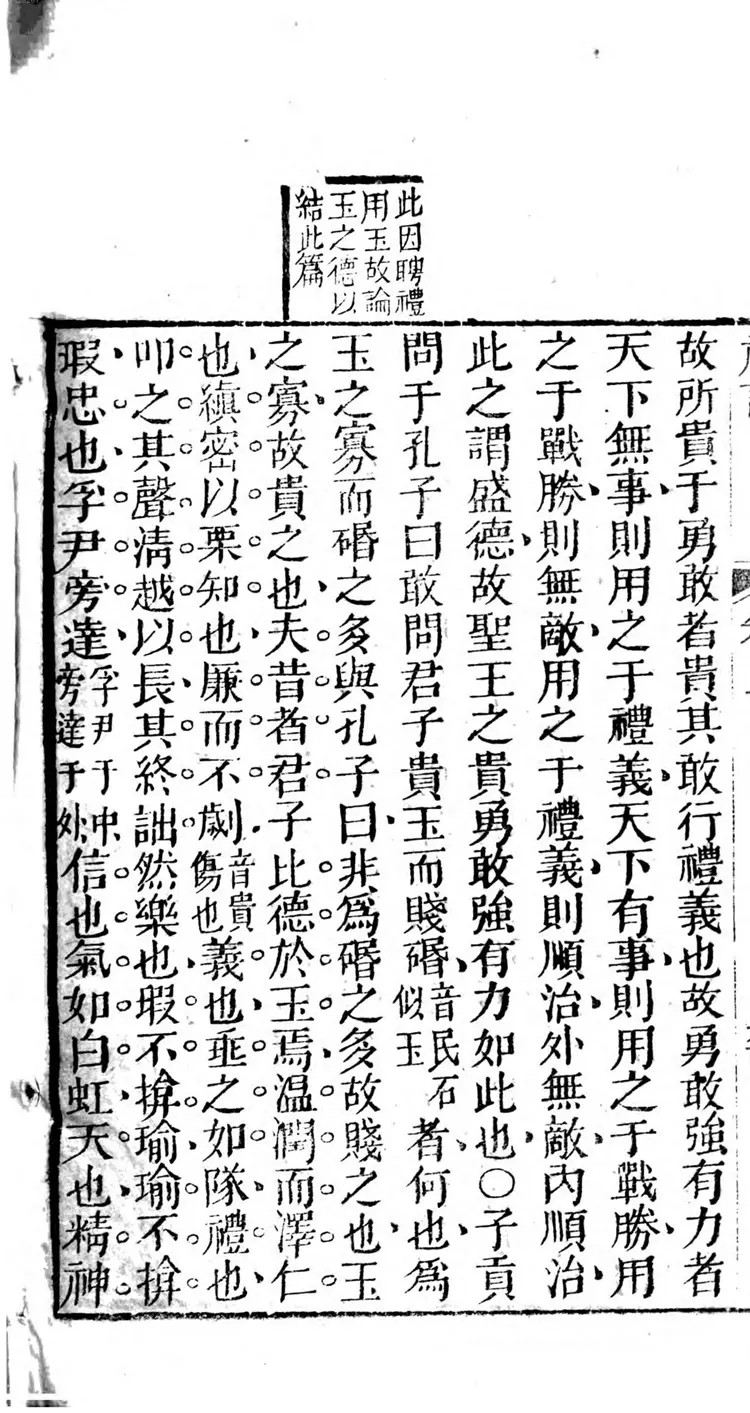 此因聘禮
用玉故論
玉之德以
結此篇
故所貴于勇敢者貴其敢行禮義也故勇敢強有力者
天下無事則用之于禮義天下有事則用之于戰勝用
之于戰勝則無敵用之于禮義則順治外無敵內順治
此之謂盛德故聖王之貴勇敢強有力如此也○子貢
問于孔子曰敢問君子貴玉而賤碈音民石似玉者何也為
玉之寡而碈之多與孔子曰非為碈之多故賤之也玉
之寡故貴之也夫昔者君子比德於玉焉温潤而澤仁
也縝密以栗知也廉而不劌音貴傷也義也垂之如隊禮也
叩之其聲清越以長其終詘然樂也瑕不揜瑜瑜不揜
瑕忠也孚尹旁達孚尹于中旁達于外信也氣如白虹天也精神